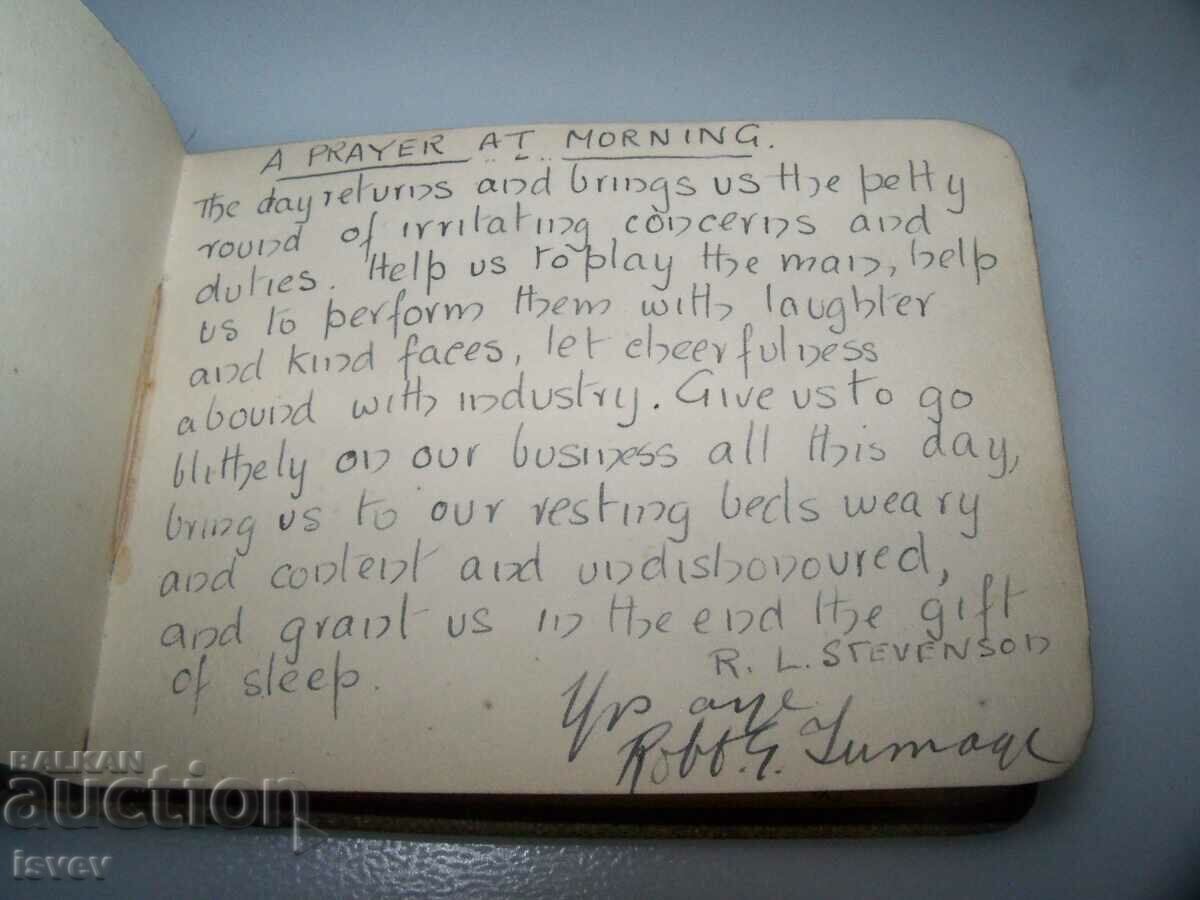 A PRAYER AT MORNING.
The day returns and brings us the petty
round of irritating concerns and
duties. Help us to play the man, help
us to perform them with laughter
and kind faces, let cheerfulness
abound with industry. Give us to go
blithely on our business all this day,
bring us to our resting beds weary
and content and undishonoured,
and grant us in the end the gift
of sleep.
R. L. STEVENSON
Yrs aye
Robt. G.
BALKAN
auction
isvev